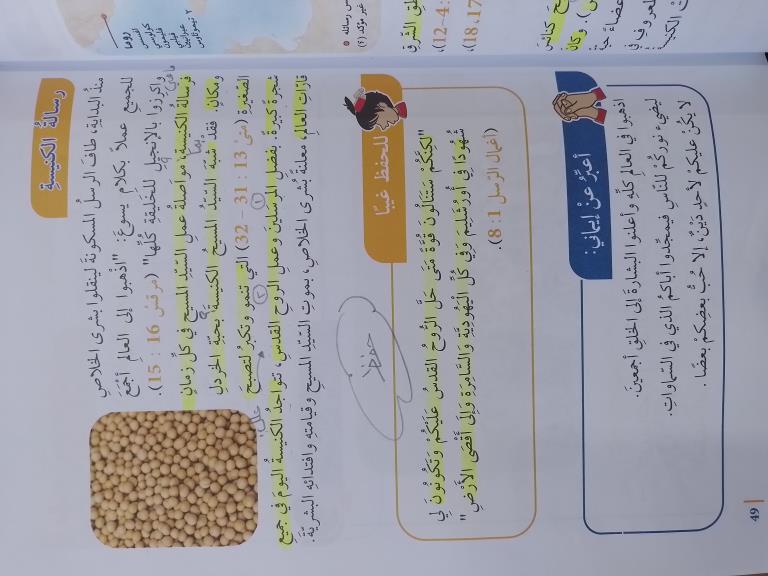 رسالةُ الكنيسةِ
منذُ البداية، طافَ الرسلُ المسكونةَ لينقلوا بشرى الخلاصِ
للجميعِ عملاً بكلامِ يسوعَ: "اذْهبوا إلى العالمِ أجمَعَ
واكرِزوا بالإنجيلِ للخليقةِ كُلِّها" (مرقس 16 : 15).
فرسالةُ الكنيسةِ، مواصلةُ عملِ السيّدِ المسيحِ في كلِّ زمانٍ
ومكانٍ. فقدْ شبَّهَ السيّدُ المسيحُ الكنيسةَ بحبّةِ الخردلِ
الصّغيرةِ (متى 13 : 31 – 32) التي تنمو وتكبرُ لتصبحَ
شجرةً كبيرةً. بفضلِ المرسَلينَ وعملِ الروحِ القدسِ، تتواجدُ الكنيسةُ اليومَ في جميعِ
قارّاتِ العالمِ، معلنةً بُشرى الخلاصِ، بموتِ السيّدِ المسيحِ وقيامتِهِ وافتدائِهِ البشريّةَ.
علل:
①
②
حفظ
للحفظِ غيبًا
"لكِنَّكُمْ سَتَنالُونَ قُوَّةً مَتَى حَلَّ الرُّوحُ القدسُ عَلَيْكُمْ وَتَكُونُونَ لِي
شُهُودًا فِي أُورُشَلِيمَ وَفِي كُلِّ الْيَهُودِيَّةِ وَالسَّامِرَةِ وَإِلَى أَقْصَى الأَرْضِ"
(أعمال الرّسل 1: 8).
أعبِّرُ عنْ إيماني:
اذهبوا في العالمِ كلِّهِ وأعلنوا البشارةَ إلى الخلقِ أجمعينَ.
ليضيءَ نورُكُمْ للنّاسِ فيمجِّدوا أباكمُ الذي في السّماواتِ.
لا يكُنْ عليكمْ لأحدٍ دَيْنٌ، إلا حُبُّ بعضِكمْ بعضًا.
49
روما